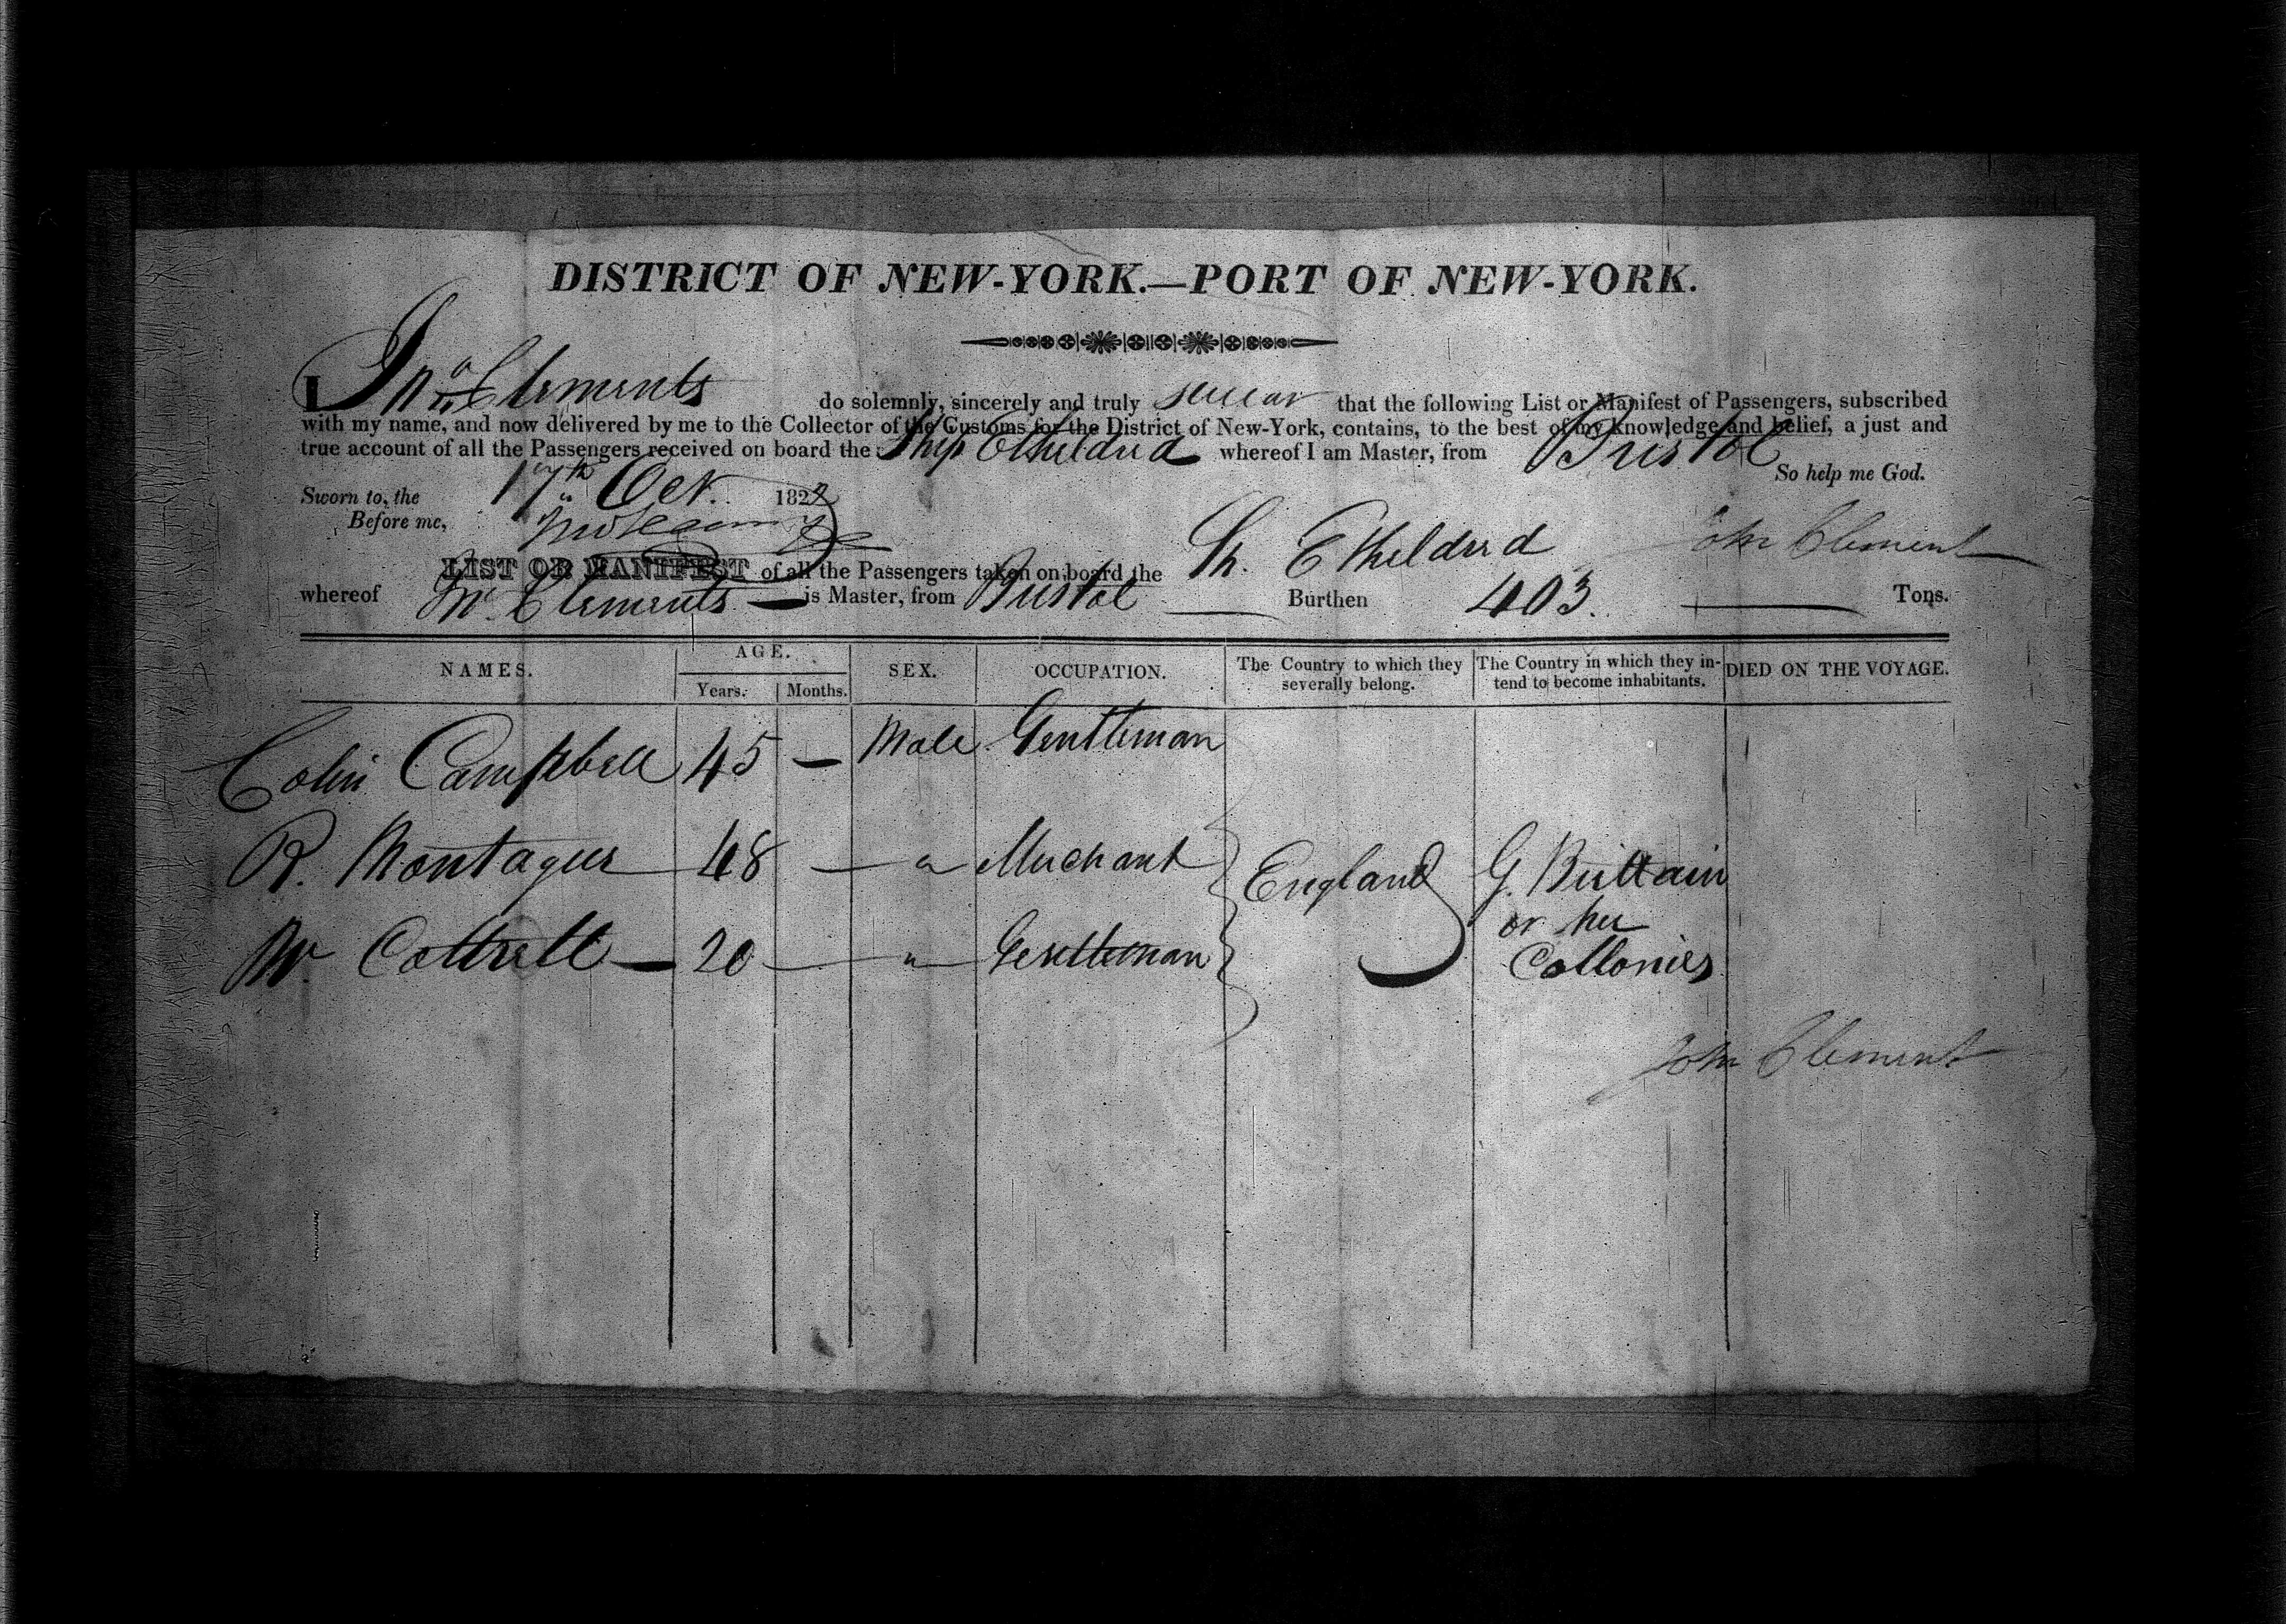 DISTRICT OF NEW-YORK.—PORT OF NEW-YORK.
I Jno Clements do solemnly, sincerely and truly swear that the following List or Manifest of Passengers, subscribed
with my name, and now delivered by me to the Collector of the Customs for the District of New-York, contains, to the best of my knowledge and belief, a just and
true account of all the Passengers received on board the Ship Etheldred whereof I am Master, from Bristol
So help me God.
Sworn to, the 17th Oct. 182
Before me,
John Clement
LIST OR MANIFEST of all the Passengers taken on board the Sh. Etheldred
whereof Clements — is Master, from Bristol Burthen 403. Tons.
NAMES. AGE. SEX. OCCUPATION. The Country to which they severally belong. The Country in which they intend to become inhabitants. DIED ON THE VOYAGE.
Years. Months.
Colin Campbell 45 — Male Gentleman
R. Montague 48 — " Merchant England G. Brittain
or her
Cottrell — 20 — " Gentleman Collonies
John Clement